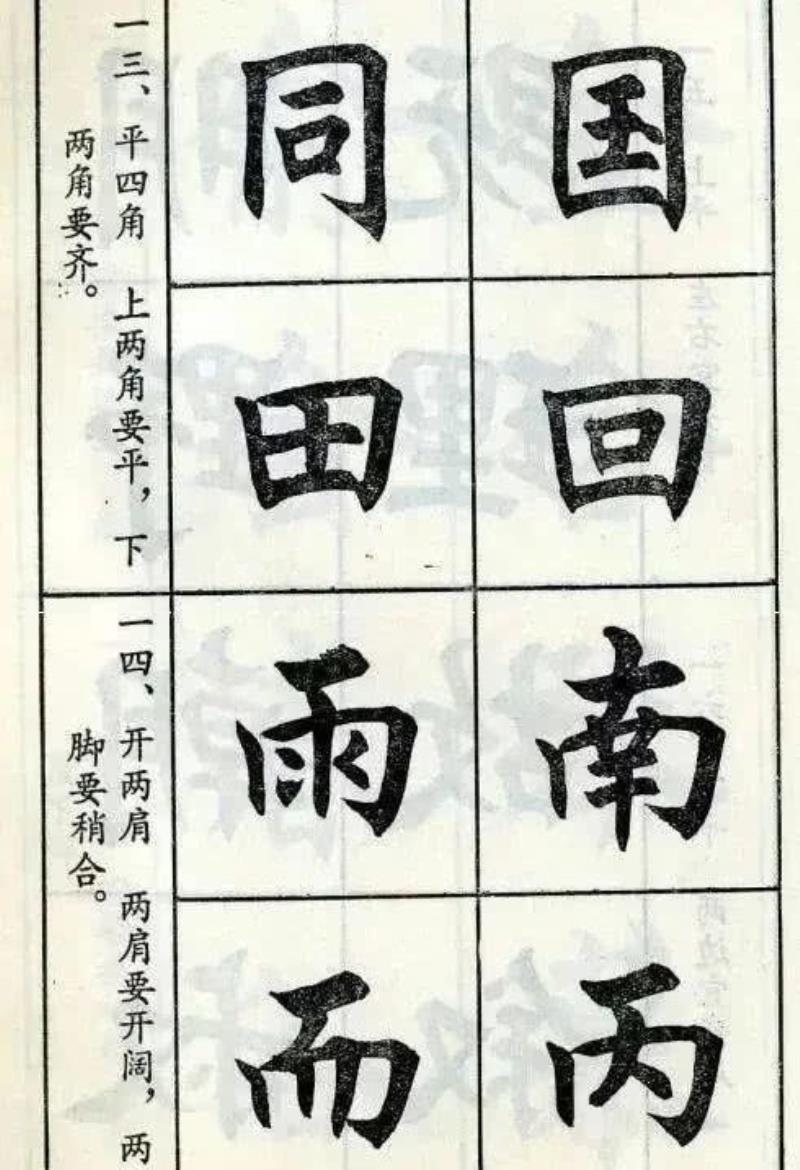 国
回
同
田
一三、平四角 上两角要平，下
两角要齐。
南
丙
雨
而
一四、开两肩 两肩要开阔，两
脚要稍合。